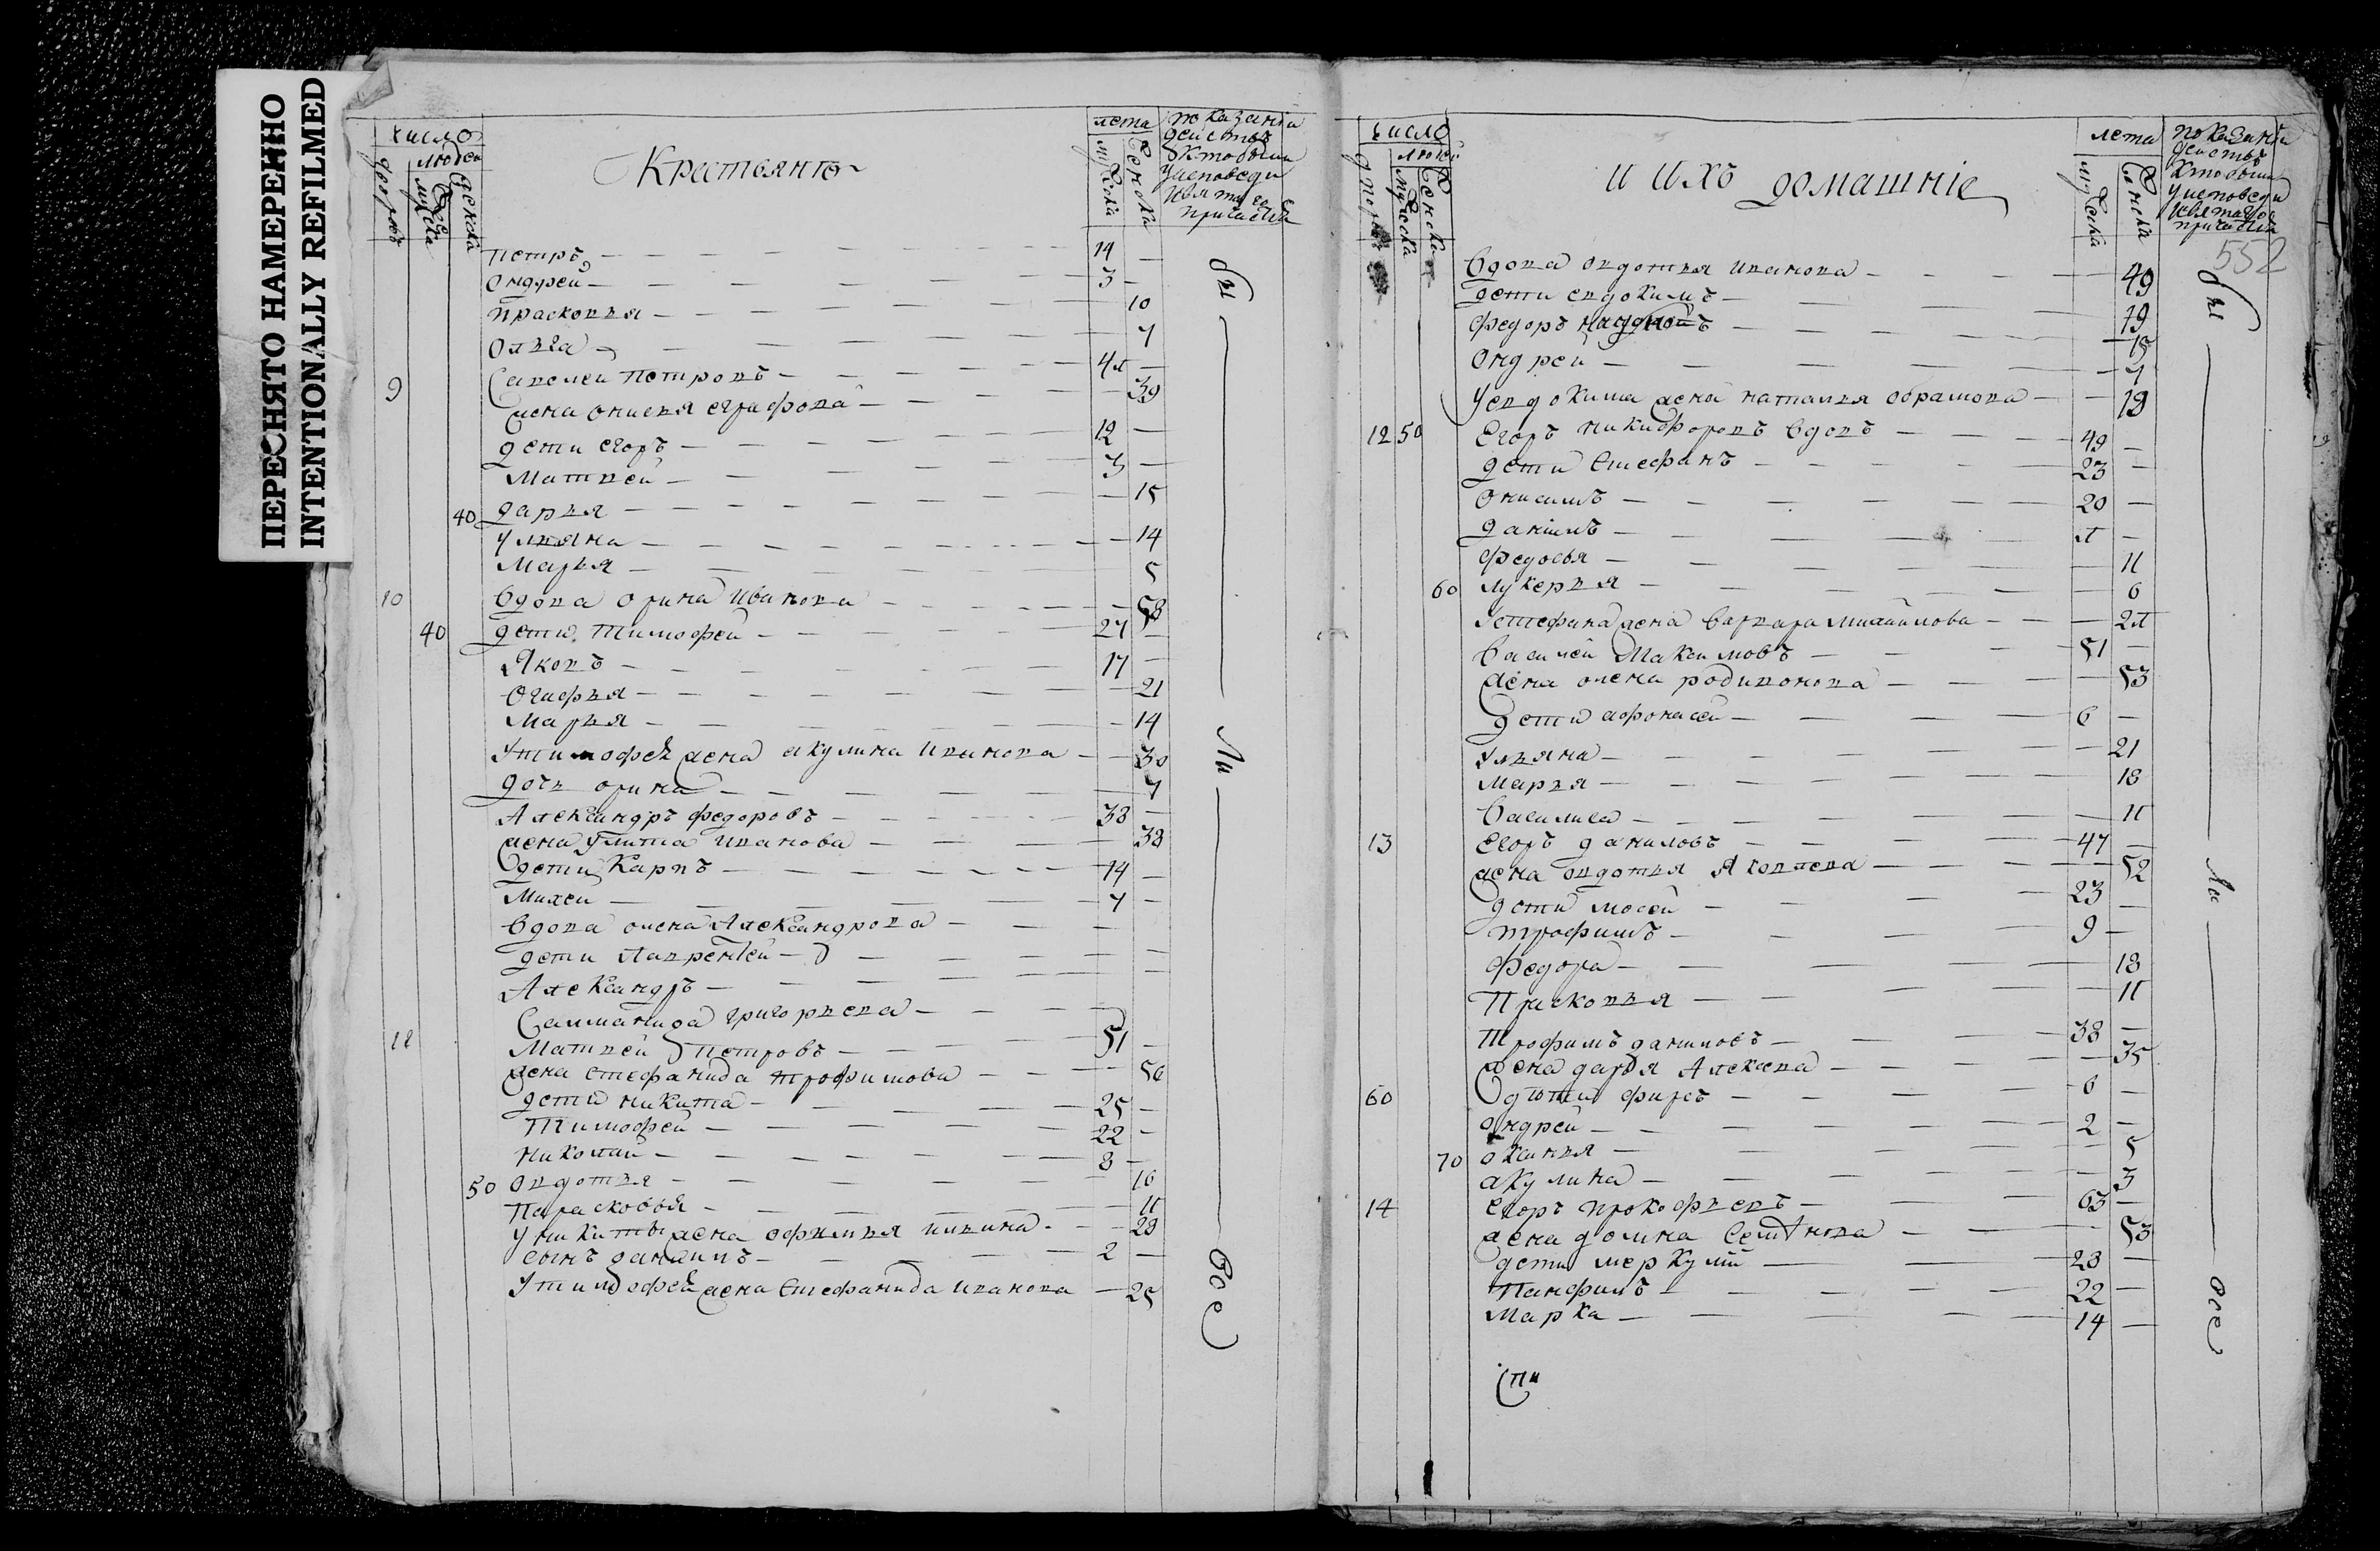 ПЕРЕСНЯТО НАМЕРЕННО
INTENTIONALLY REFILMED
число
дворовъ
людей
мужеска
женска
Крестьянъ
лета
мужеска
женска
показаніи
действъ
кто были
у исповеди
и святаго
причастия
Петръ 14
Ондрей 3
Прасковья 10
Ольга 7
9 Савелей Петровъ 4л
жена Онисья Еграфова 39
дети Егоръ 12
Матвей 3
40 Дарья 15
Ульяна 14
Марья 5
10 Вдова Орина Иванова 58
40 дети Тимофей 27
Яковъ 17
Огафья 21
Марья 14
У Тимофея жена Акулина Иванова 30
дочь Орина 7
Александръ Федоровъ 38
жена Улита Иванова 38
дети Карпъ 14
Михей 7
Вдова Олена Александрова
дети Лаврентей
Александръ
Саломанида Григорьева
11 Матвей Петровъ 51
жена Стефанида Трофимова 56
дети Никита 25
Тимофей 22
Николай 8
50 Овдотья 16
Парасковья 11
У Никиты жена Офимья Ильина 28
сынъ Даниилъ 2
У Тимофея жена Стефанида Иванова 25
были
все
число
дворовъ
людей
мужеска
женска
и ихъ домашніе
лета
мужеска
женска
показаніи
действъ
кто были
у исповеди
и святаго
причастия
552
Вдова Овдотья Иванова 49
дети Евдокимъ 19
Федоръ 15
Ондрей 7
У Евдокима жена Наталья Обрамова 19
12 50 Егоръ Никифоровъ вдовъ 49
дети Стефанъ 23
Онисимъ 20
Даниилъ л
Федосья 11
60 Лукерья 6
У Стефана жена Варвара Михайлова 2л
Василей Максимовъ 51
жена Олена Родивонова 53
дети Афонасей 6
Ульяна 21
Марья 18
Василиса 11
13 Егоръ Даниловъ 47
жена Овдотья Яковлева 52
дети Мосей 23
Трофимъ 9
Федора 18
Прасковья 11
Трофимъ Даниловъ 38
жена Дарья Алексева 35
60 дети Фирсъ 6
Андрей 2
70 Оксинья 5
Акулина 3
14 Егоръ Прокофьевъ 63
жена Домна Семенова 53
дети Меркулий 28
Панфилъ 22
Марка 14
были
все